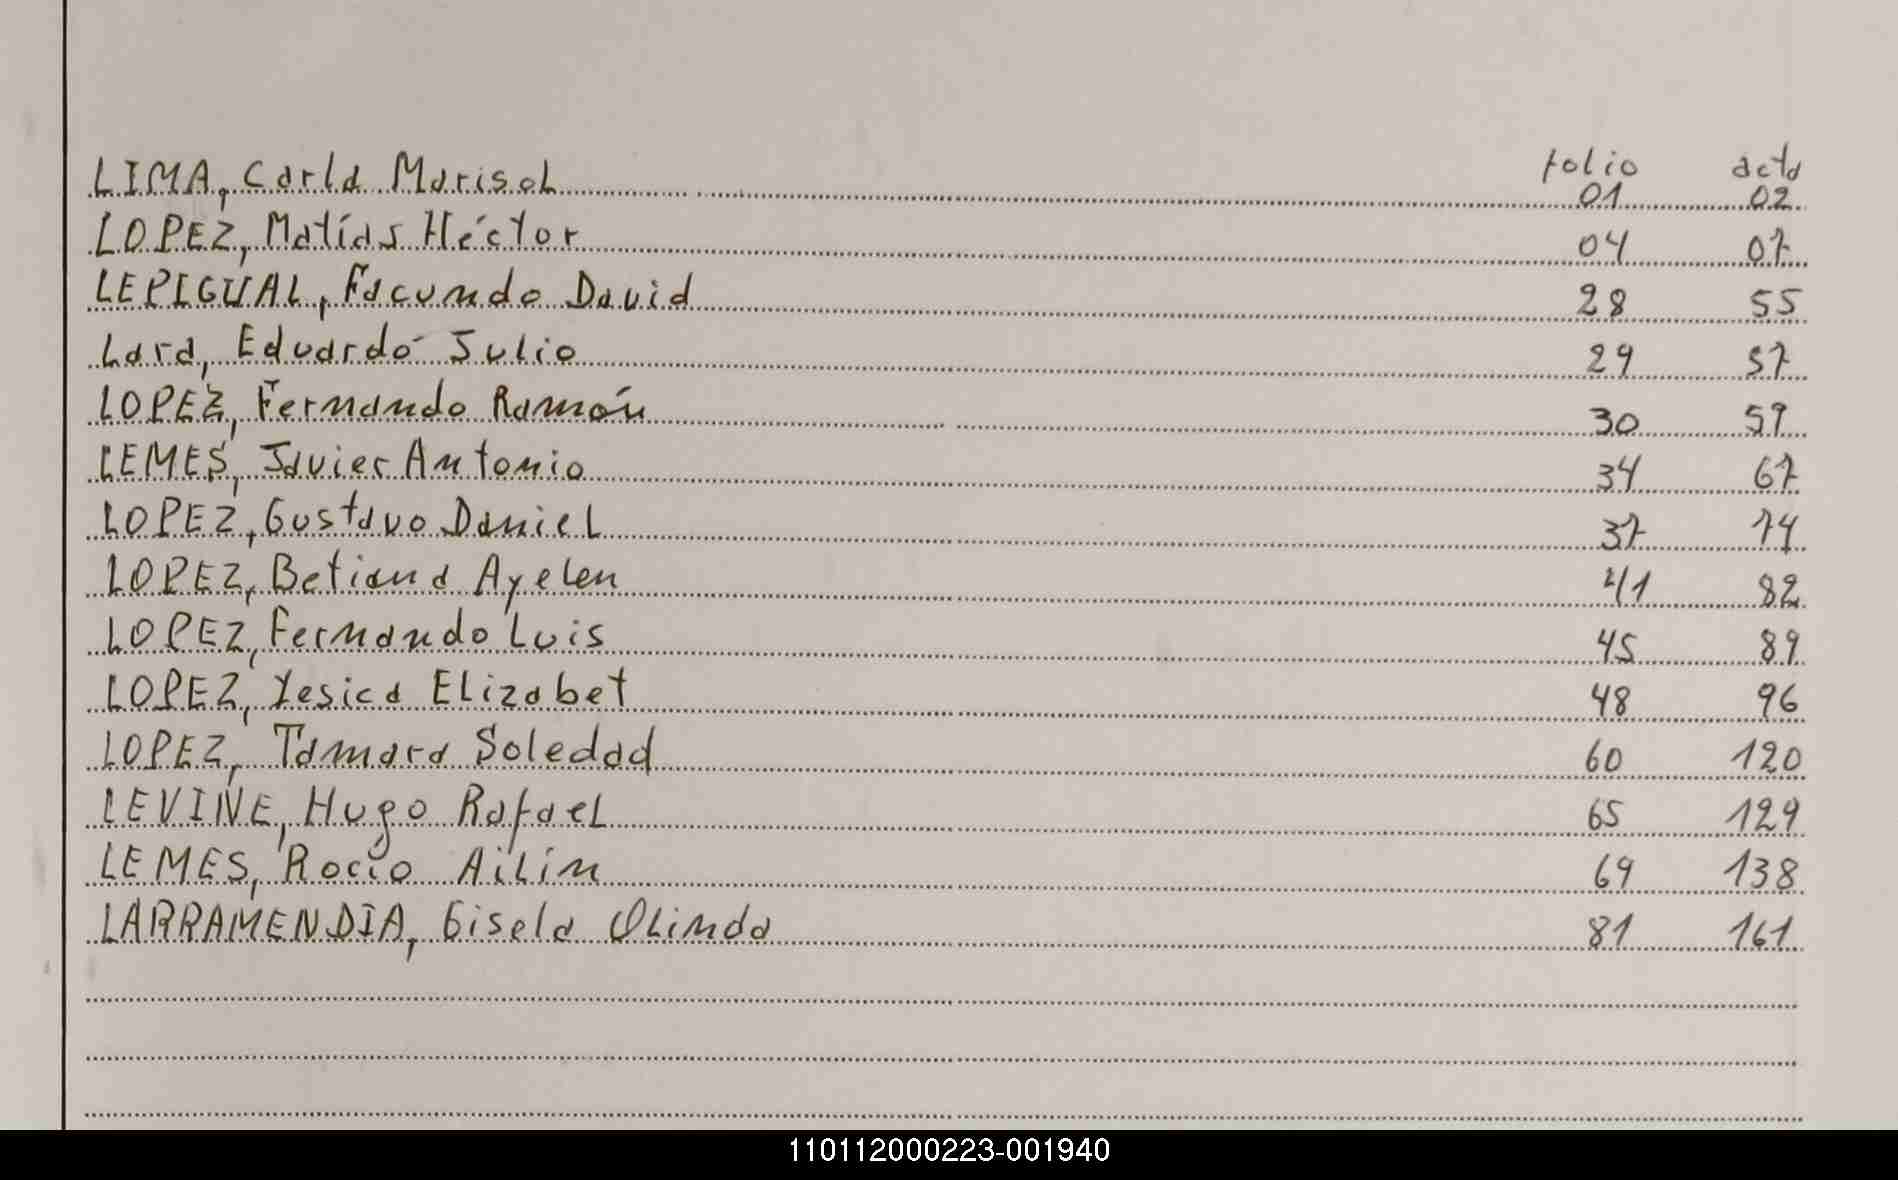 folio acta
LIMA, Carla Marisol 01 02
LOPEZ, Matías Héctor 04 07
LEPIGUAL, Facundo David 28 55
Lara, Eduardo Julio 29 57
LOPEZ, Fernando Ramón 30 59
LEMES, Javier Antonio 34 67
LOPEZ, Gustavo Daniel 37 74
LOPEZ, Betiana Ayelen 41 82
LOPEZ, Fernando Luis 45 89
LOPEZ, Yesica Elizabet 48 96
LOPEZ, Tamara Soledad 60 120
LEVINE, Hugo Rafael 65 129
LEMES, Rocío Ailin 69 138
LARRAMENDIA, Gisela Olinda 81 161
110112000223-001940